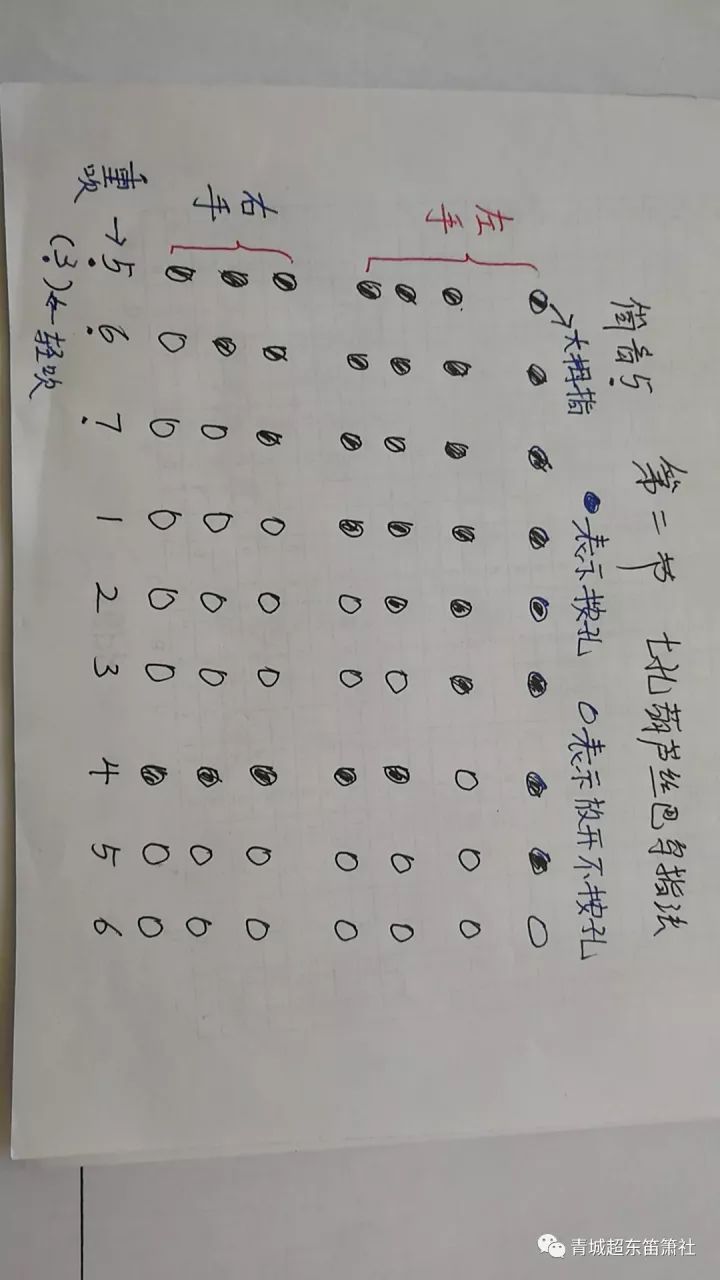 第二节 七孔葫芦丝巴乌指法
筒音5̣ ●表示按孔 ○表示放开不按孔
→大拇指
左手
● ● ● ● ● ● ● ● ○
● ● ● ● ● ● ○ ○ ○
● ● ● ● ● ○ ● ○ ○
● ● ● ● ○ ○ ● ○ ○
右手
● ● ● ○ ○ ○ ● ○ ○
● ● ○ ○ ○ ○ ● ○ ○
● ○ ○ ○ ○ ○ ● ○ ○
重吹→5̣ 6̣ 7̣ 1 2 3 4 5 6
(3̣)←轻吹
青城超东笛箫社